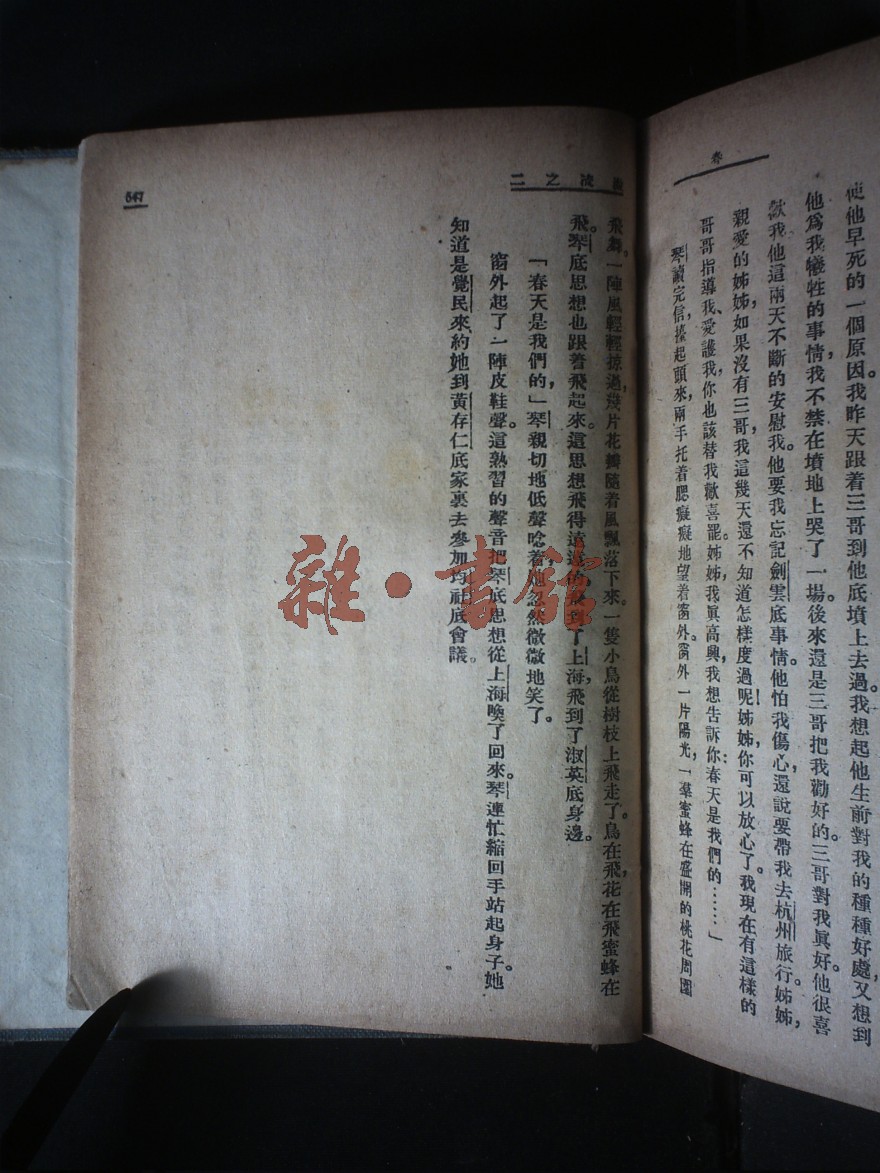 春
使他早死的一個原因。我昨天跟着三哥到他底墳上去過。我想起他生前對我的種種好處，又想到
他爲我犧牲的事情，我不禁在墳地上哭了一場。後來還是三哥把我勸好的。三哥對我眞好。他很喜
歡我。他這兩天不斷的安慰我。他要我忘記劍雲底事情。他怕我傷心，還說要帶我去杭州旅行。姊姊，
親愛的姊姊，如果沒有三哥，我這幾天還不知道怎樣度過呢！姊姊，你可以放心了。我現在有這樣的
哥哥指導我、愛護我，你也該替我歡喜罷。姊姊，我眞高興，我想告訴你：春天是我們的……」
琴讀完信，擡起頭來，兩手托着腮癡癡地望着窗外。窗外一片陽光，一羣蜜蜂在盛開的桃花周圍
之二
飛舞。一陣風輕輕掠過，幾片花瓣隨着風飄落下來。一隻小鳥從樹枝上飛走了。鳥在飛，花在飛，蜜蜂在
飛。琴底思想也跟着飛起來。這思想飛得遠遠的，飛到了上海，飛到了淑英底身邊。
「春天是我們的，」琴親切地低聲唸着。她忽然微微地笑了。
窗外起了一陣皮鞋聲。這熟習的聲音把琴底思想從上海喚了回來。琴連忙縮回手站起身子。她
知道是覺民來約她到黃存仁底家裏去參加均社底會議。
647
雜·書館